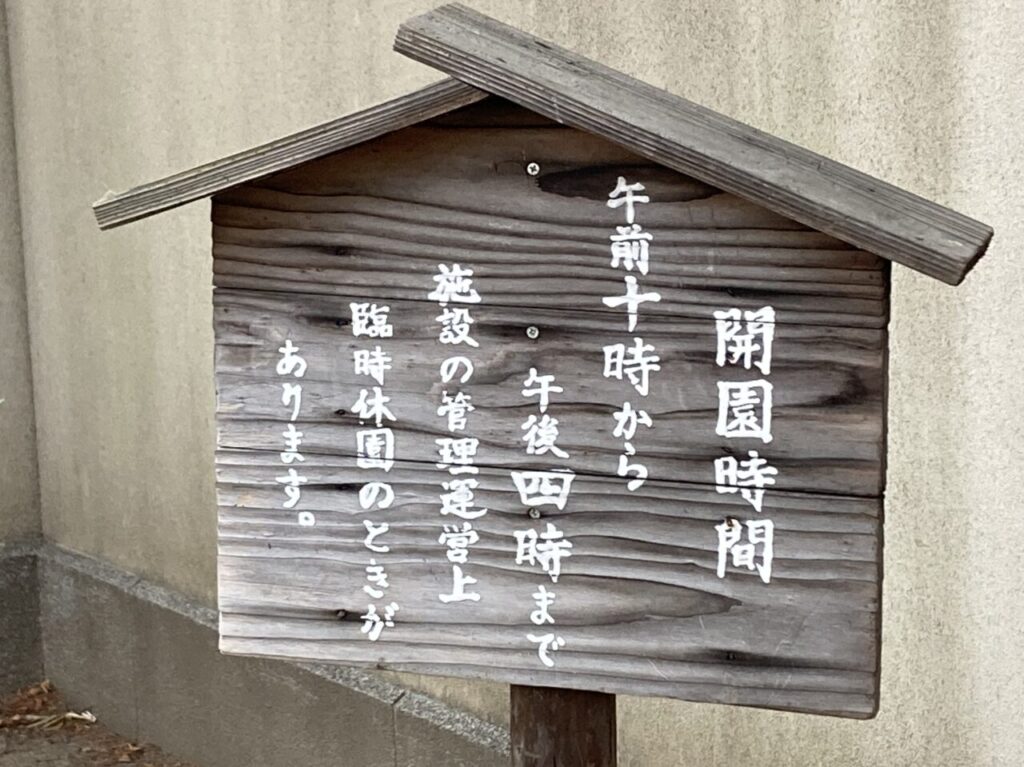 開園時間
午前十時から
午後四時まで
施設の管理運営上
臨時休園のときが
あります。